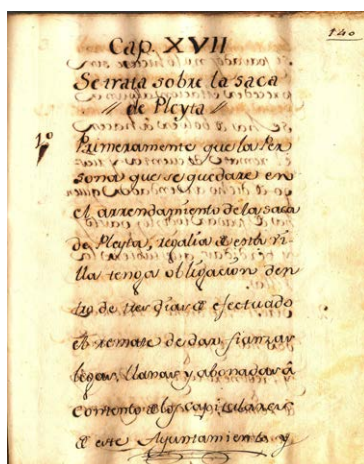 140
Cap. XVII
Setrata sobre la saca
de Pleyta
1º
Primeramente que la Per
sona que se quedare en
el arrendamiento de la saca
de Pleyta, regalia de esta vi
lla tenga obligacion den
tro de tres dias de efectuado
el remate de dar fianzas
legas, llanas y abonadas à
contento de los capitulares
de este Ayuntamiento y